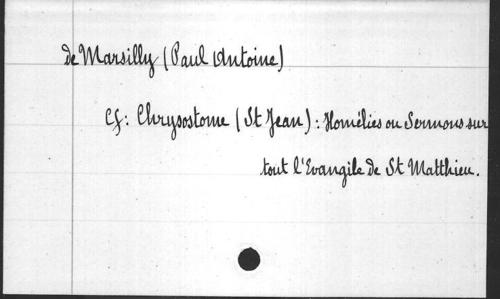 de Marsilly (Paul Antoine)
Cf: Chrysostome (St Jean): Homélies ou Sermons sur
tout l'Evangile de St Matthieu.